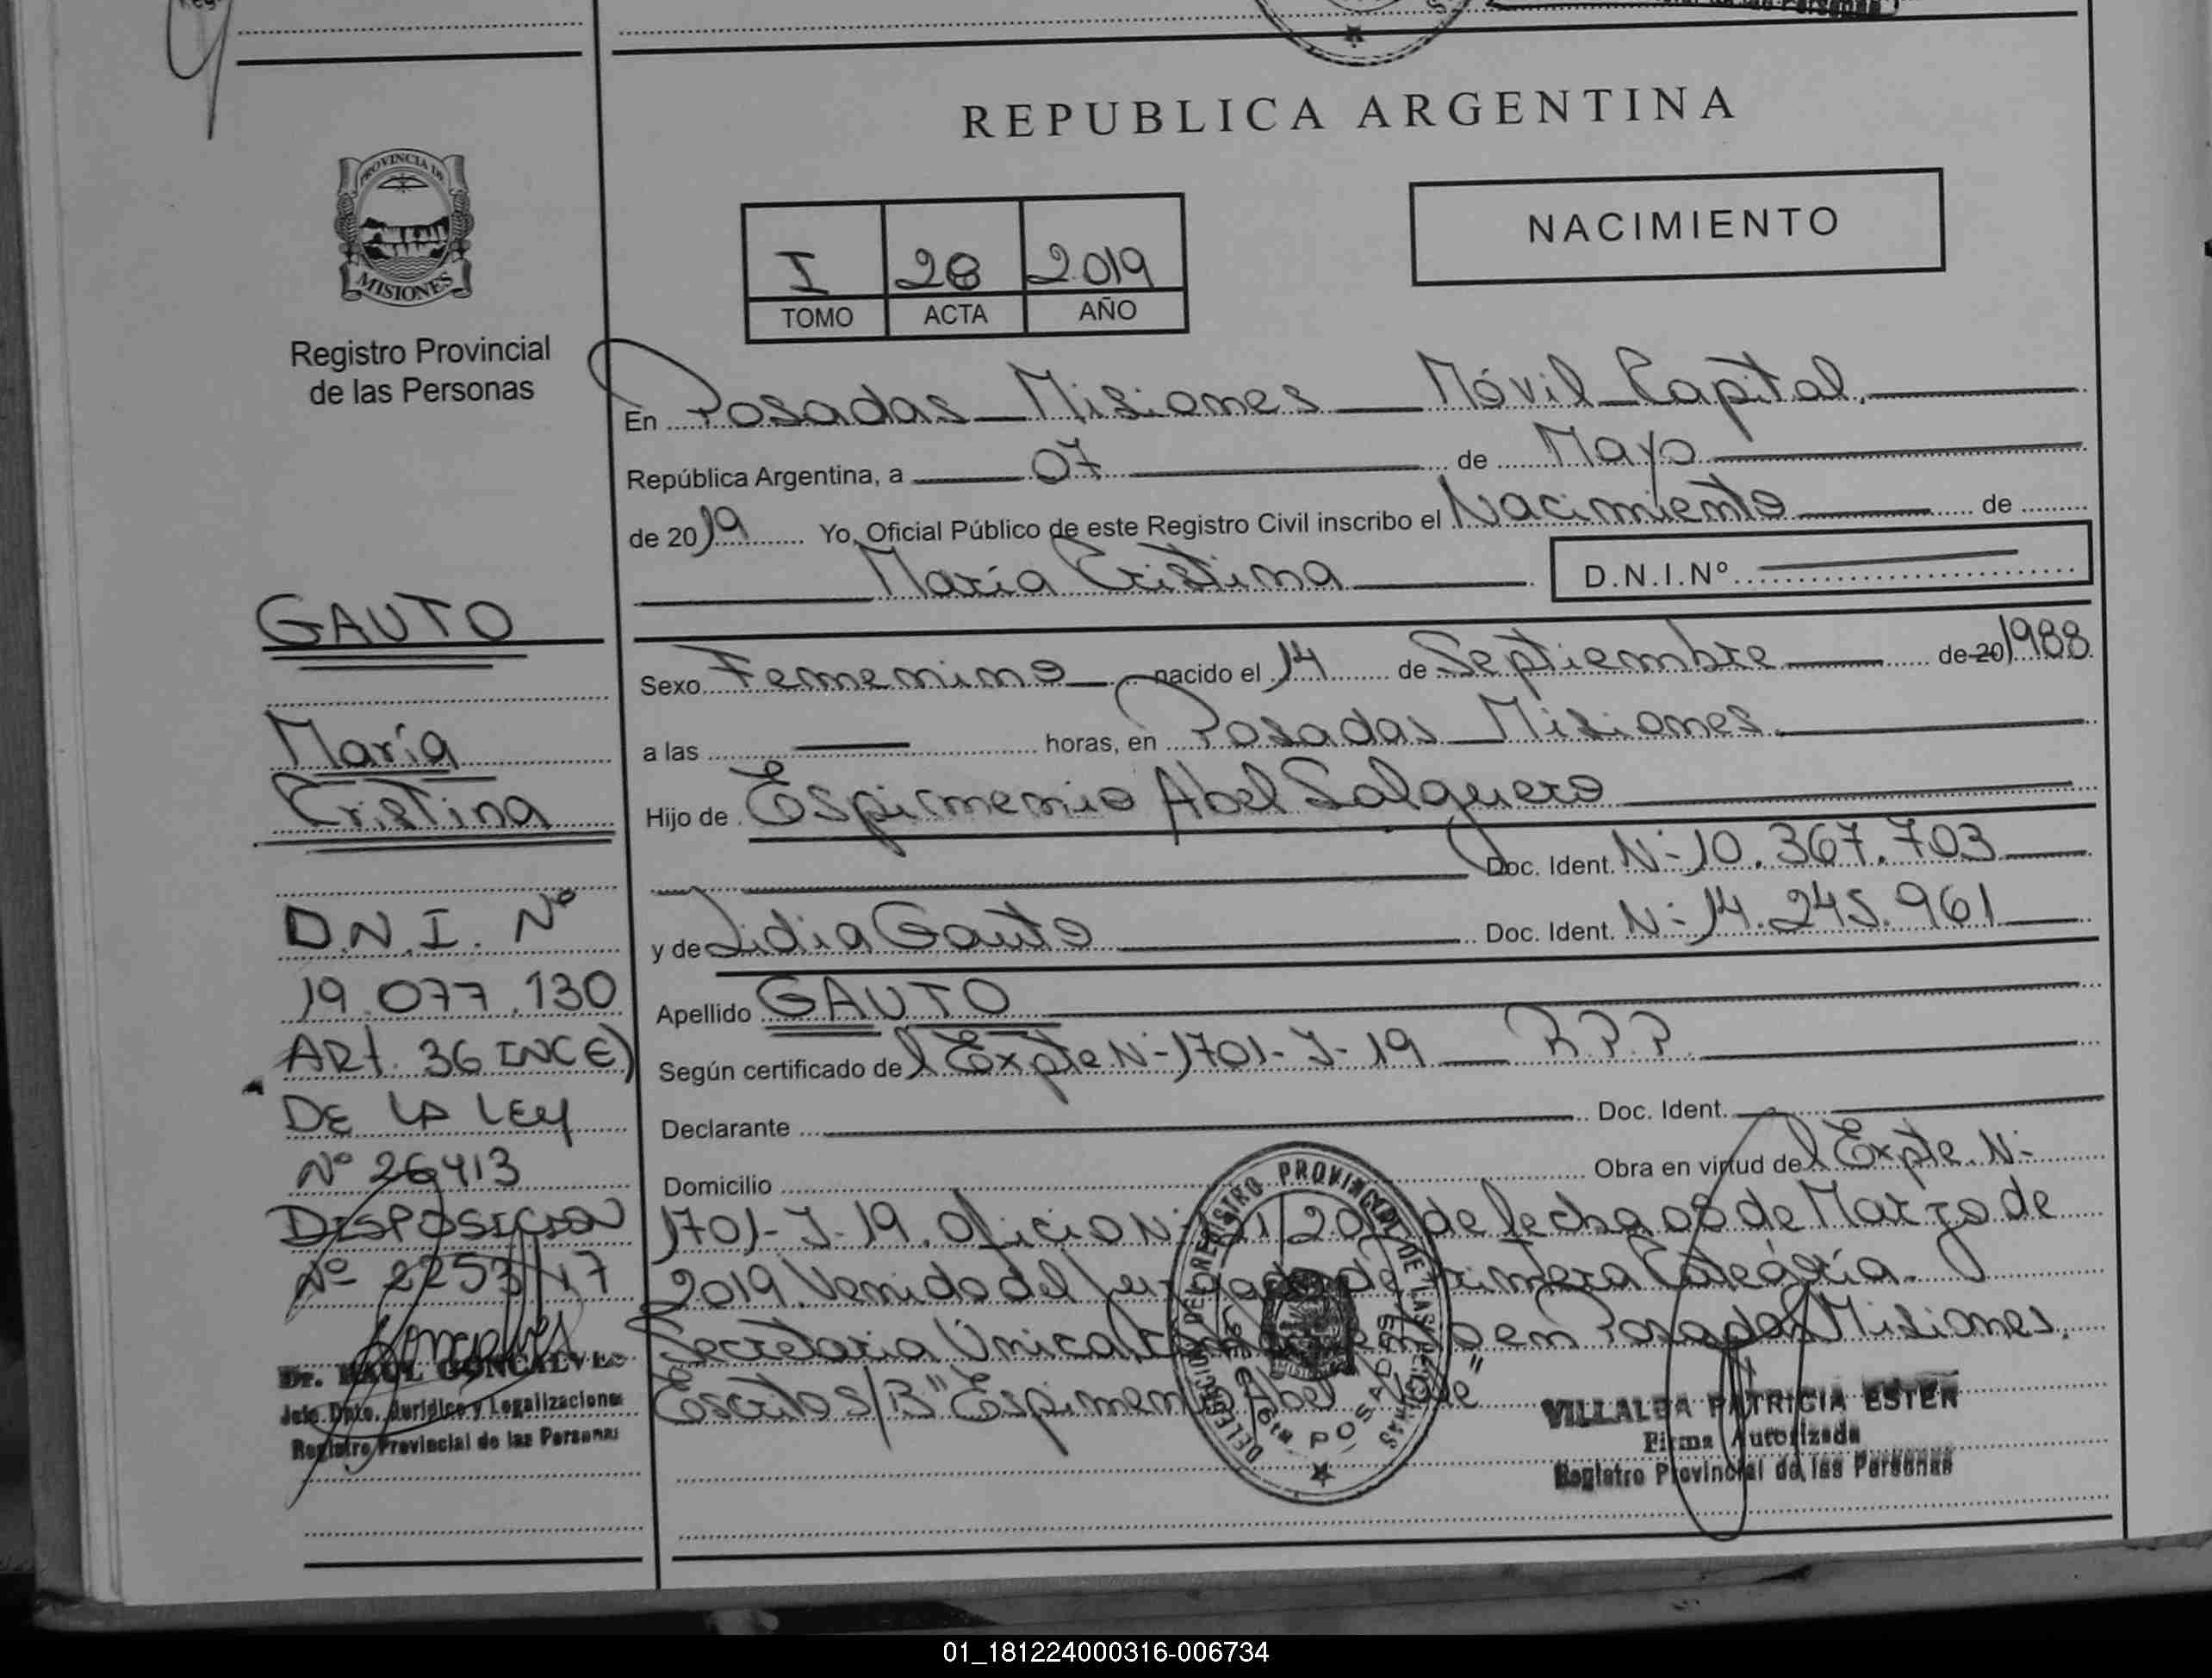 REPUBLICA ARGENTINA
NACIMIENTO
I 28 2019
TOMO ACTA AÑO
PROVINCIA DE
MISIONES
Registro Provincial
de las Personas
GAUTO
María
Cristina
D.N.I. Nº
19.077.130
ARt. 36 INC E)
DE LA LEY
Nº 26413
DISPOSICION
Nº 2253/17
Dr. RAUL GONCALVES
Jefe Dpto. Jurídico y Legalizaciones
Registro Provincial de las Personas
En Posadas Misiones Móvil Capital.
República Argentina, a 07 de Mayo
de 2019 Yo, Oficial Público de este Registro Civil inscribo el Nacimiento de
María Cristina D.N.I.Nº
Sexo Femenino nacido el 14 de Septiembre de 20 1988
a las horas, en Posadas Misiones.
Hijo de Espirmenio Abel Salguero
Doc. Ident. N- 10.367.703
y de Lidia Gauto Doc. Ident. N- 14.245.961
Apellido GAUTO
Según certificado del Expte N- 1701-J-19 R.P.P.
Declarante Doc. Ident.
Domicilio Obra en virtud del Expte. N-
1701-J-19. Oficio N- de fecha 08 de Marzo de
2019. Venido del Juzgado de Primera Categoría.
Secretaria Única, en Posadas Misiones.
Escrito S/B" Abel
REGISTRO PROVINCIAL DE LAS PERSONAS
POSADAS
VILLALBA PATRICIA ESTER
Firma Autorizada
Registro Provincial de las Personas
01_181224000316-006734